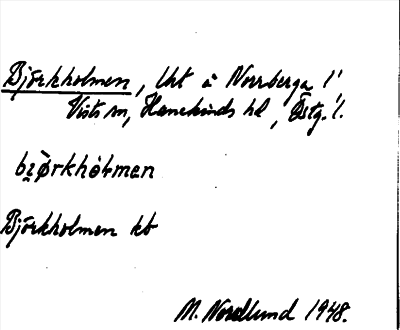 Björkholmen, Uht å Norrberga l.!
Vists sn, Hanekinds hd, Östg. l.
Björkholmen kb
M. Nordlund 1948.